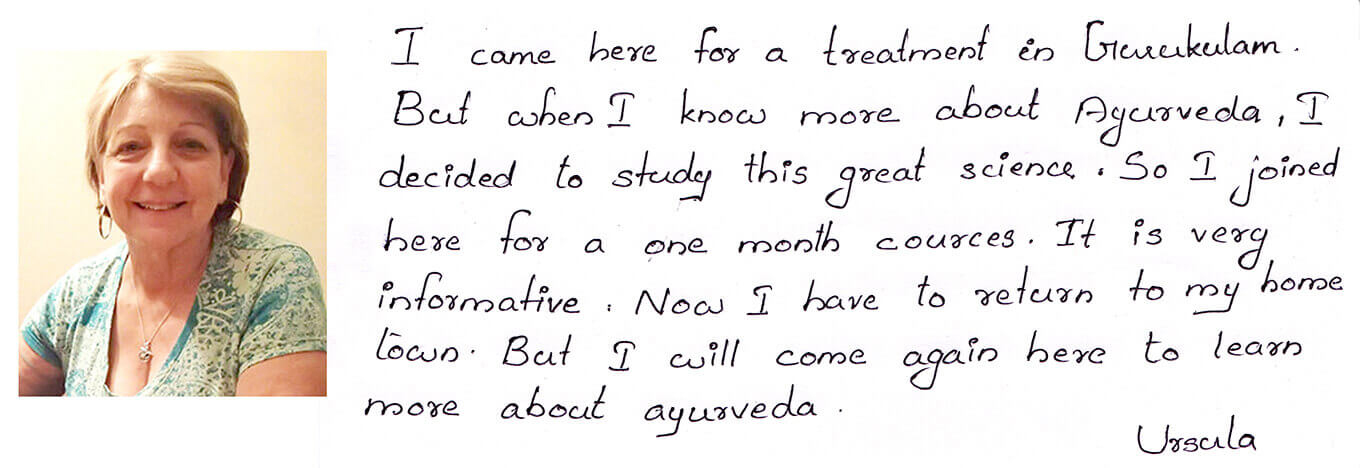 I came here for a treatment in Gurukulam.
But when I know more about Ayurveda, I
decided to study this great science. So I joined
here for a one month cources. It is very
informative. Now I have to return to my home
town. But I will come again here to learn
more about ayurveda.
Ursula